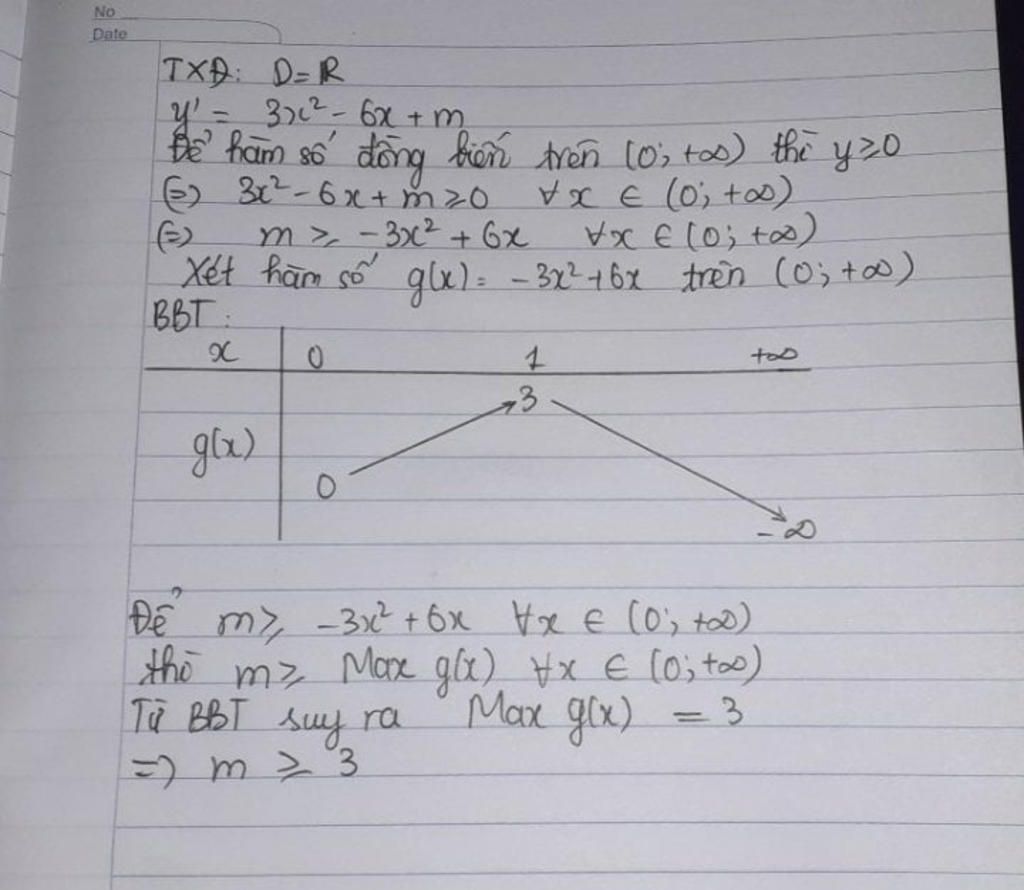 No
Date
TXĐ: D=R
y' = 3x² - 6x + m
Để hàm số đồng biến trên (0; +∞) thì y ≥ 0
(=) 3x² - 6x + m ≥ 0 ∀x ∈ (0; +∞)
(=) m ≥ -3x² + 6x ∀x ∈ (0; +∞)
Xét hàm số g(x) = -3x² + 6x trên (0; +∞)
BBT:
x 0 1 +∞
3
g(x)
0
-∞
Để m ≥ -3x² + 6x ∀x ∈ (0; +∞)
thì m ≥ Max g(x) ∀x ∈ (0; +∞)
Từ BBT suy ra Max g(x) = 3
=) m ≥ 3